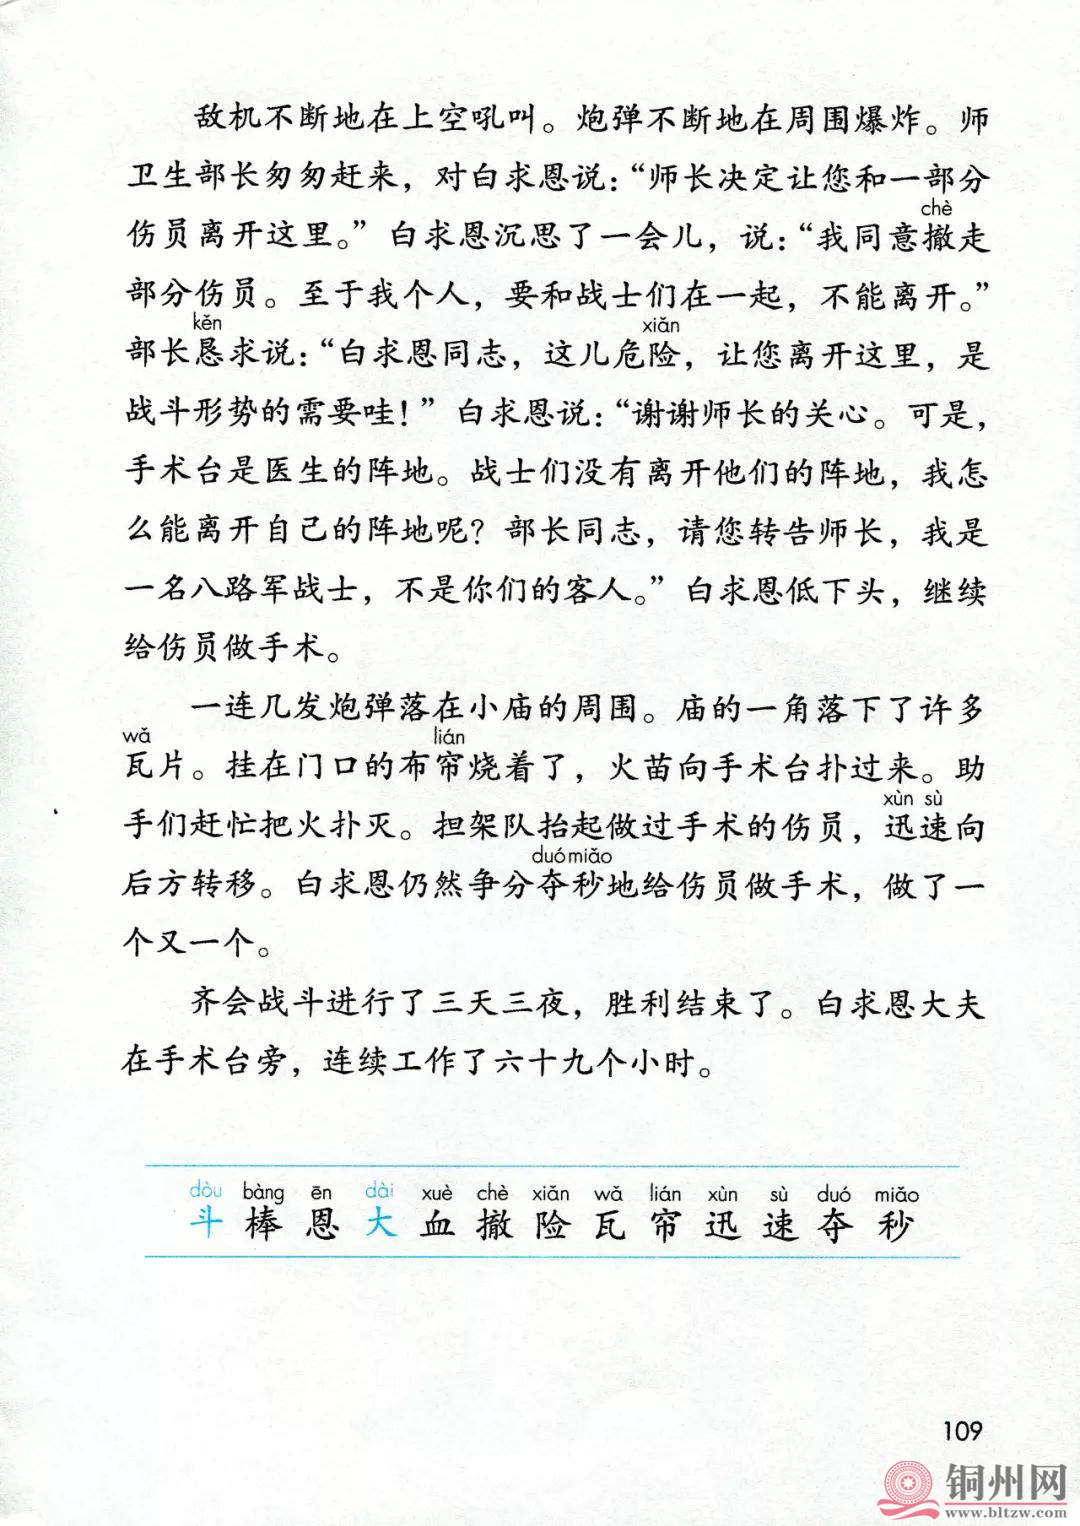 敌机不断地在上空吼叫。炮弹不断地在周围爆炸。师
卫生部长匆匆赶来，对白求恩说：“师长决定让您和一部分
chè
伤员离开这里。”白求恩沉思了一会儿，说：“我同意撤走
部分伤员。至于我个人，要和战士们在一起，不能离开。”
kěn xiǎn
部长恳求说：“白求恩同志，这儿危险，让您离开这里，是
战斗形势的需要哇！”白求恩说：“谢谢师长的关心。可是，
手术台是医生的阵地。战士们没有离开他们的阵地，我怎
么能离开自己的阵地呢？部长同志，请您转告师长，我是
一名八路军战士，不是你们的客人。”白求恩低下头，继续
给伤员做手术。
一连几发炮弹落在小庙的周围。庙的一角落下了许多
wǎ lián
瓦片。挂在门口的布帘烧着了，火苗向手术台扑过来。助
xùn sù
手们赶忙把火扑灭。担架队抬起做过手术的伤员，迅速向
duó miǎo
后方转移。白求恩仍然争分夺秒地给伤员做手术，做了一
个又一个。
齐会战斗进行了三天三夜，胜利结束了。白求恩大夫
在手术台旁，连续工作了六十九个小时。
dòu bàng ēn dài xuè chè xiǎn wǎ lián xùn sù duó miǎo
斗 棒 恩 大 血 撤 险 瓦 帘 迅 速 夺 秒
109
铜州网
www.bltzw.com